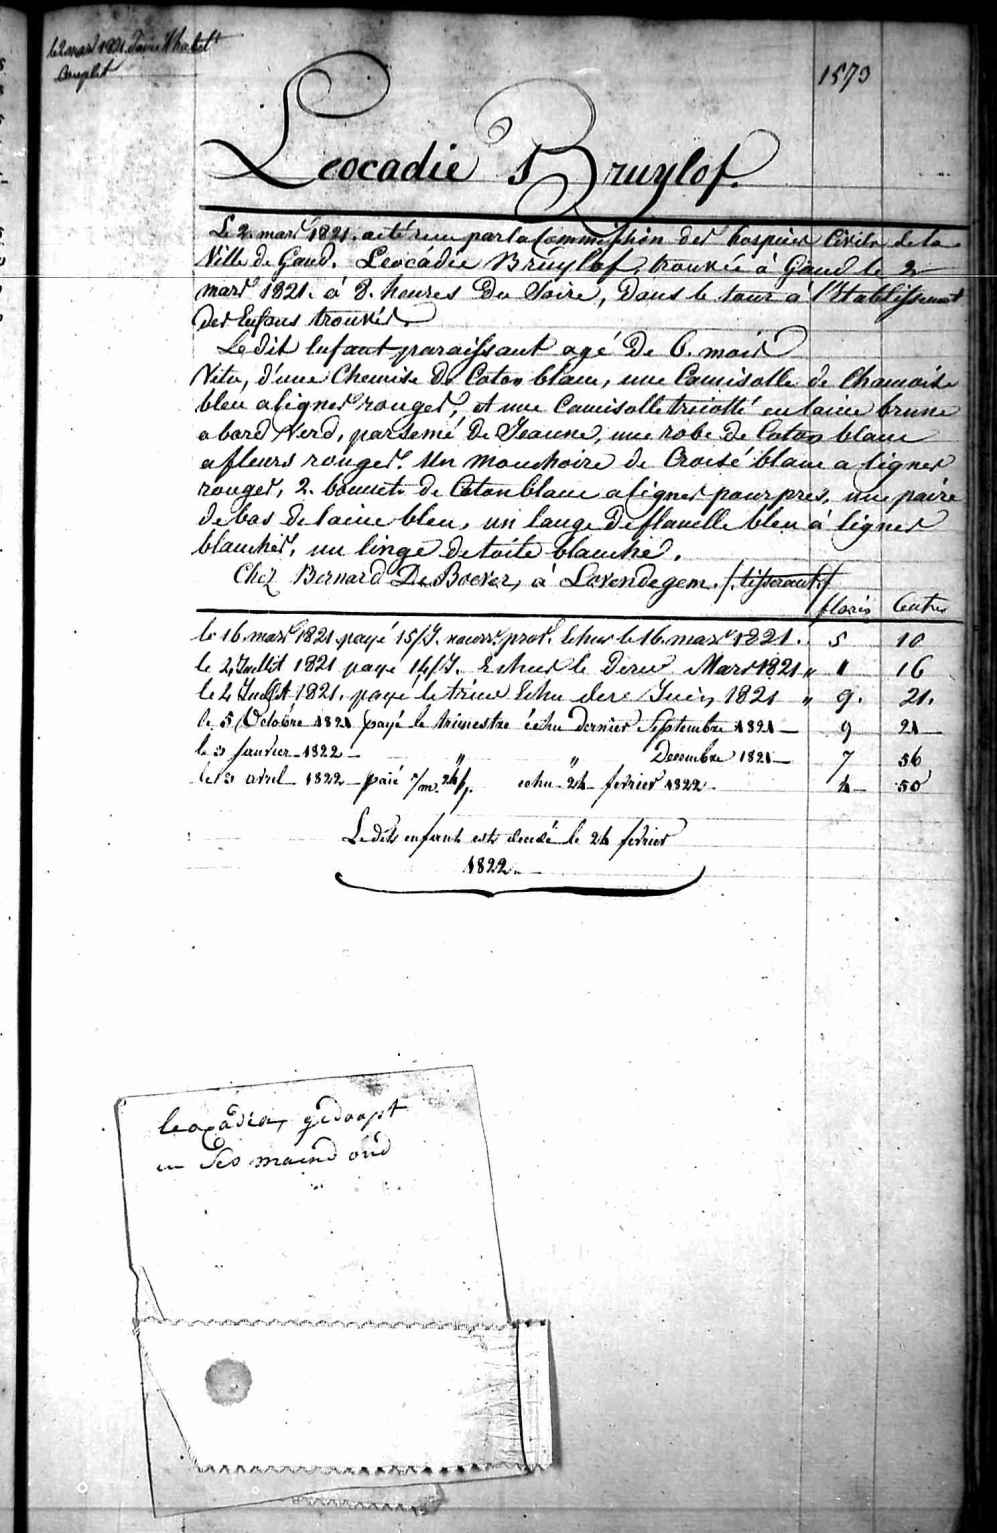 le 2 mars 1821. Douze l'habilt
Complet
1573
Leocadie Bruylof.
Le 2. mars 1821. a été reçu par la Commission des hospices Civils de la
Ville de Gand. Leocadie Bruylof, trouvée à Gand le 2
mars 1821. à 8. heures du Soire, dans le tour à l'Etablissement
des Enfans trouvés.
Le dit Enfant paraissant agé de 6. mois
Vetu, d'une Chemise de Coton blanc, une Camisolle de Chamoise
bleu a lignes rouges, et une Camisolle tricotté en laine brune
a bord Verd, parsemé de Jeaune, une robe de Coton blanc
a fleurs rouges. Un mouchoire de Croisé blanc a lignes
rouges, 2. bonnets de Coton blanc a lignes pourpres, une paire
de bas de laine bleu, un lange de flanelle bleu à lignes
blanches, un linge de toile blanche.
Chez Bernard De Boever, à Lovendegem. /.tisserant./
florins Centes
le 16. mars 1821. payé 15/J. nourr. prov. Echus le 16. mars 1821. 5 10
le 2 Juillet 1821 payé 14/J. Echus le dere Mars 1821 " 1 16
le 2 Juillet 1821. payé le trime Echu dere Juin 1821 " 9. 21.
le 5 Octobre 1821 payé le trimestre échu dernier Septembre 1821 — 9 21 —
le 3 Janvier 1822 — " " Decembre 1821 — 7 56
le 3 avril 1822 — paié 1/m. 24/j. echu 24 fevrier 1822. 4 — 50
Le dit enfant est décedé le 24 fevrier
1822. —
leocadia, gedoopt
en Ses maend oud